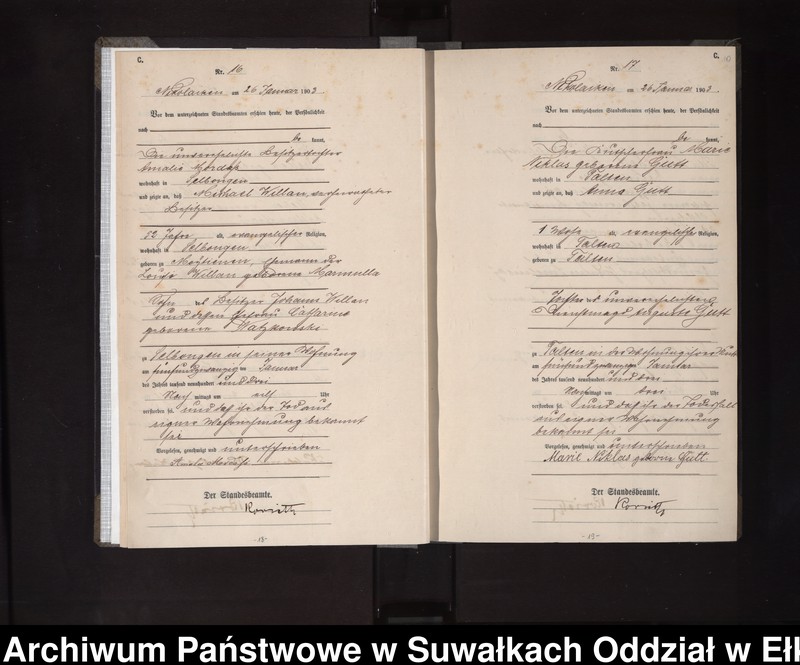 C.
Nr. 16
Nikolaiken am 26 Januar 1903
Vor dem unterzeichneten Standesbeamten erschien heute, der Persönlichkeit
nach
be kannt,
Die unverehelichte Besitzertochter
Amalie
wohnhaft in Selbongen
und zeigte an, daß Michael Willan, verheirateter
Besitzer
52 Jahre alt, evangelischer Religion,
wohnhaft in Selbongen
geboren zu Ehemann der
Louise Willan geborene
Sohn des Besitzer Johann Willan
und dessen Ehefrau Catharina
geborene Watzkowski
zu Selbongen in seiner Wohnung
am fünfundzwanzigten Januar
des Jahres tausend neunhundert und drei
Nach mittags um elf Uhr
verstorben sei und daß ihr der Tod aus
eigener Wissenschaft bekannt
sei
Vorgelesen, genehmigt und unterschrieben
Amalie
Der Standesbeamte.
- 13 -
C.
Nr. 17
Nikolaiken am 26 Januar 1903
Vor dem unterzeichneten Standesbeamten erschien heute, der Persönlichkeit
nach
be kannt,
Die Marie
Niklas geborene Gutt
wohnhaft in Talten
und zeigte an, daß Anna Gutt
1 Woche alt, evangelischer Religion,
wohnhaft in Talten
geboren zu Talten
Tochter der unverehelichten
Dienstmagd Auguste Gutt
zu Talten in der Wohnung ihrer
am fünfundzwanzigten Januar
des Jahres tausend neunhundert und drei
Nach mittags um drei Uhr
verstorben sei und daß ihr der Todesfall
aus eigener Wissenschaft
bekannt sei
Vorgelesen, genehmigt und unterschrieben
Marie Niklas geborene Gutt
Der Standesbeamte.
- 13 -
Archiwum Państwowe w Suwałkach Oddział w Ełk